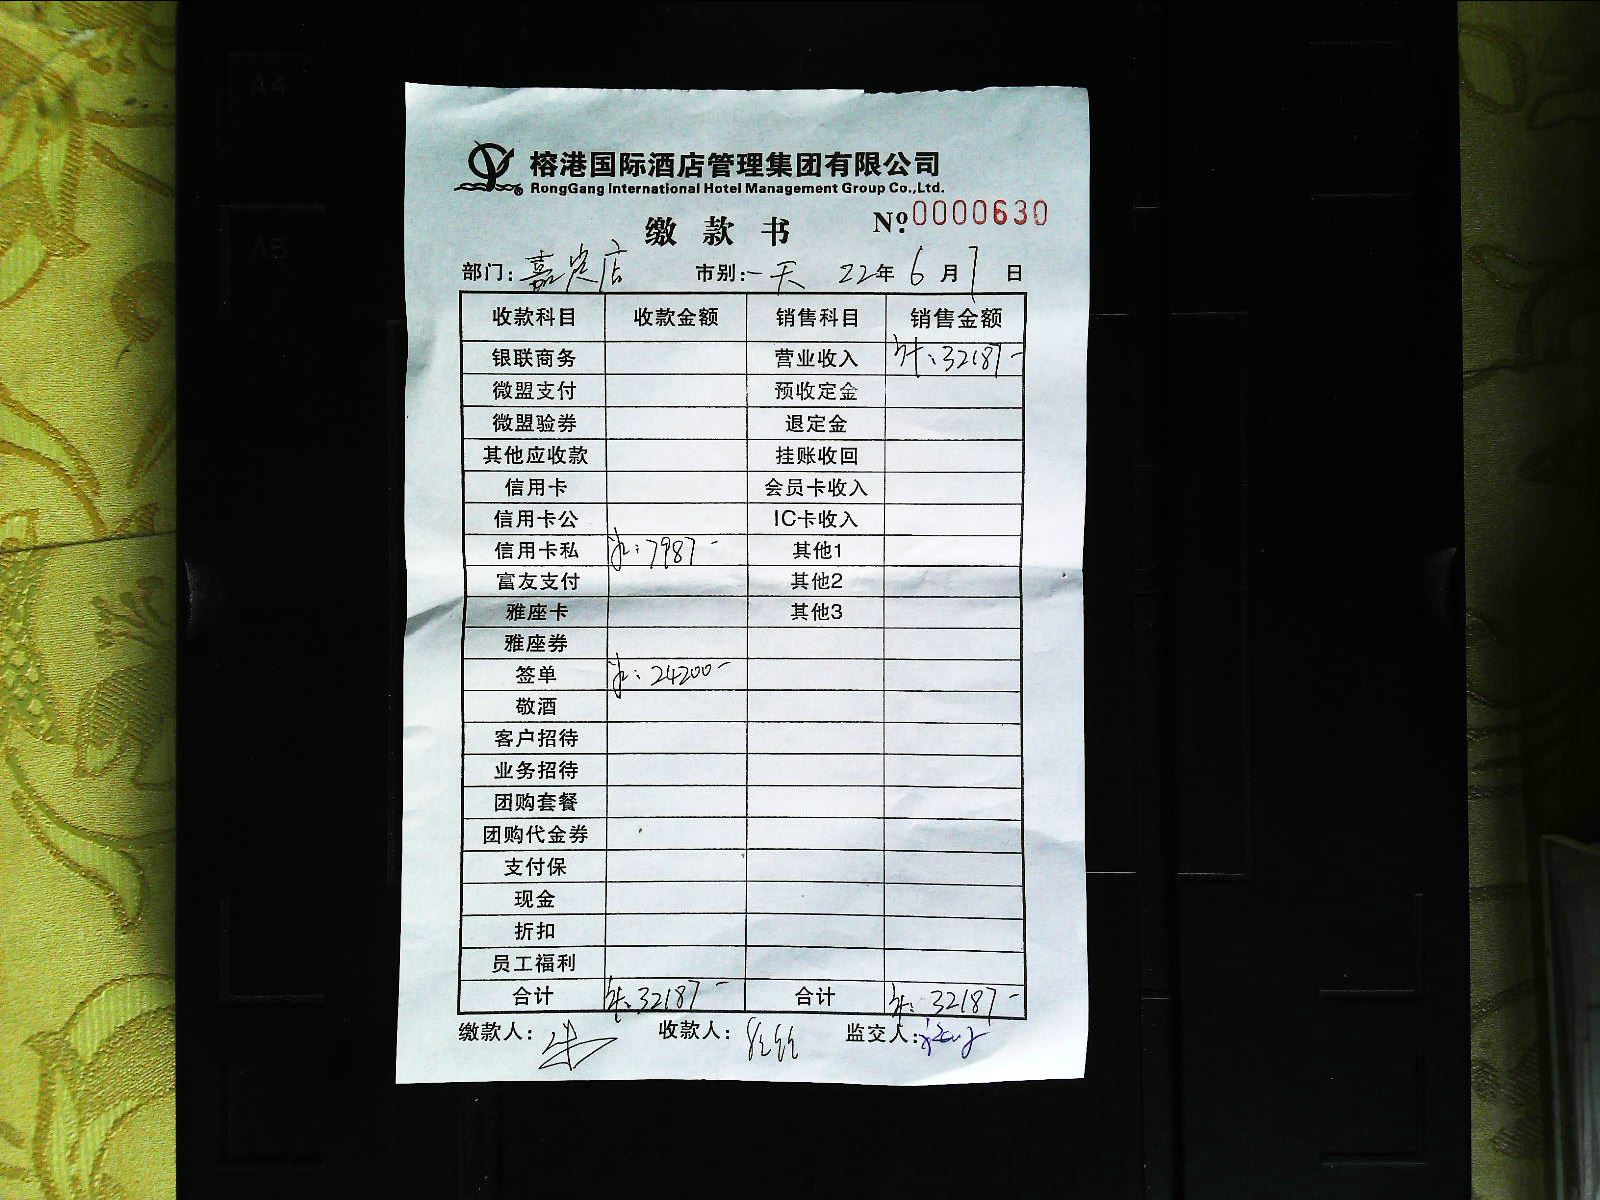 A4
A5
榕港国际酒店管理集团有限公司
RongGang International Hotel Management Group Co.,Ltd.
缴款书 №0000630
部门: 嘉定店 市别: 一天 22年 6月 1日
收款科目 收款金额 销售科目 销售金额
银联商务 营业收入 计: 32187-
微盟支付 预收定金
微盟验券 退定金
其他应收款 挂账收回
信用卡 会员卡收入
信用卡公 IC卡收入
信用卡私 计: 7987- 其他1
富友支付 其他2
雅座卡 其他3
雅座券
签单 计: 24200-
敬酒
客户招待
业务招待
团购套餐
团购代金券
支付保
现金
折扣
员工福利
合计 计: 32187- 合计 计: 32187-
缴款人: 收款人: 监交人: